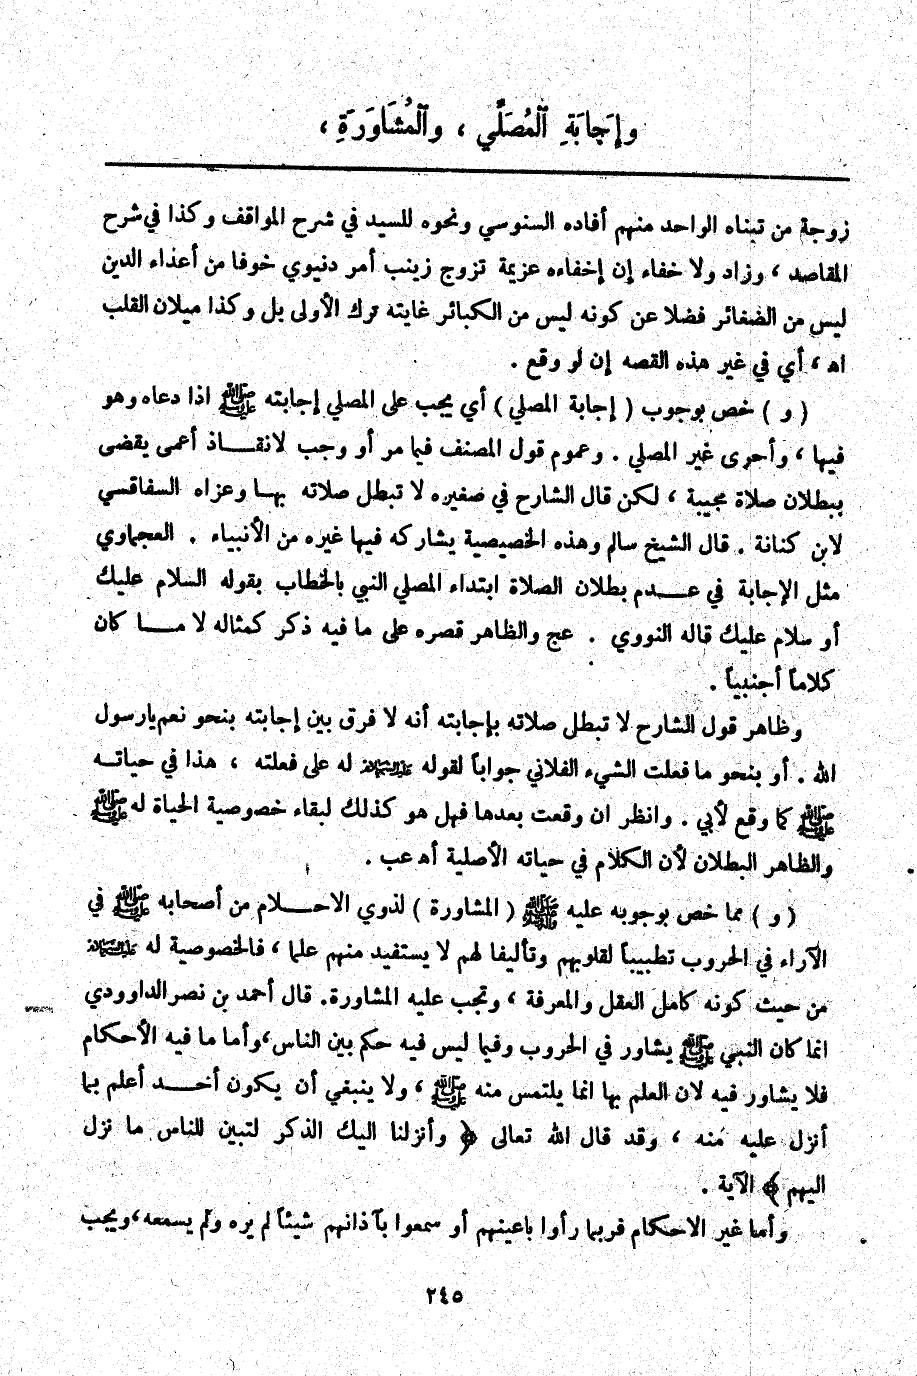 وإجَابَةِ ٱلْمُصَلِّي ، وٱلْمُشَاوَرَةِ ،
زوجة من تبناه الواحد منهم أفاده السنوسي ونحوه للسيد في شرح المواقف وكذا في شرح
المقاصد ، وزاد ولا خفاء إن إخفاءه عزيمة تزوج زينب أمر دنيوي خوفا من أعداء الدين
ليس من الصغائر فضلا عن كونه ليس من الكبائر غايته ترك الأولى بل وكذا ميلان القلب
اه ، أي في غير هذه القصه إن لو وقع .
( و ) خص بوجوب ( إجابة المصلي ) أي يجب على المصلي إجابته ﷺ اذا دعاه وهو
فيها ، وأحرى غير المصلي . وعموم قول المصنف فيما مر أو وجب لانقـاذ أعمى يقضى
ببطلان صلاة مجيبة ، لكن قال الشارح في صغيره لا تبطل صلاته بهـا وعزاه السفاقسي
لابن كنانة . قال الشيخ سالم وهذه الخصيصية يشاركه فيها غيره من الأنبياء . العجماوي
مثل الإجابة في عـدم بطلان الصلاة ابتداء المصلي النبي بالخطاب بقوله السلام عليك
أو سلام عليك قاله النووي . عج والظاهر قصره على ما فيه ذكر كمثاله لا مـا كان
كلاماً أجنبياً .
وظاهر قول الشارح لا تبطل صلاته بإجابته أنه لا فرق بين إجابته بنحو نعم يا رسول
الله . أو بنحو ما فعلت الشيء الفلاني جواباً لقوله عليه السلام له على فعلته ، هذا في حياتـه
ﷺ كما وقع لأبي . وانظر ان وقعت بعدها فهل هو كذلك لبقاء خصوصية الحياة له ﷺ
والظاهر البطلان لأن الكلام في حياته الأصلية أهـ عب .
( و ) مما خص بوجوبه عليه ﷺ ( المشاورة ) لذوي الاحـلام من أصحابه ﷺ في
الآراء في الحروب تطييباً لقلوبهم وتأليفا لهم لا يستفيد منهم علما ، فالخصوصية له عليه السلام
من حيث كونه كامل العقل والمعرفة ، وتجب عليه المشاورة. قال أحمد بن نصر الداوودي
انما كان النبي ﷺ يشاور في الحروب وفيما ليس فيه حكم بين الناس، وأما ما فيه الأحكام
فلا يشاور فيه لان العلم بها انما يلتمس منه ﷺ ، ولا ينبغي أن يكون أحـد أعلم بما
أنزل عليه منه ، وقد قال الله تعالى ﴿ وأنزلنا اليك الذكر لتبين للناس ما نزل
اليهم ﴾ الآية .
وأما غير الاحكام فربما رأوا باعينهم أو سمعوا بآذانهم شيئاً لم يره ولم يسمعه، ويجب
٢٤٥